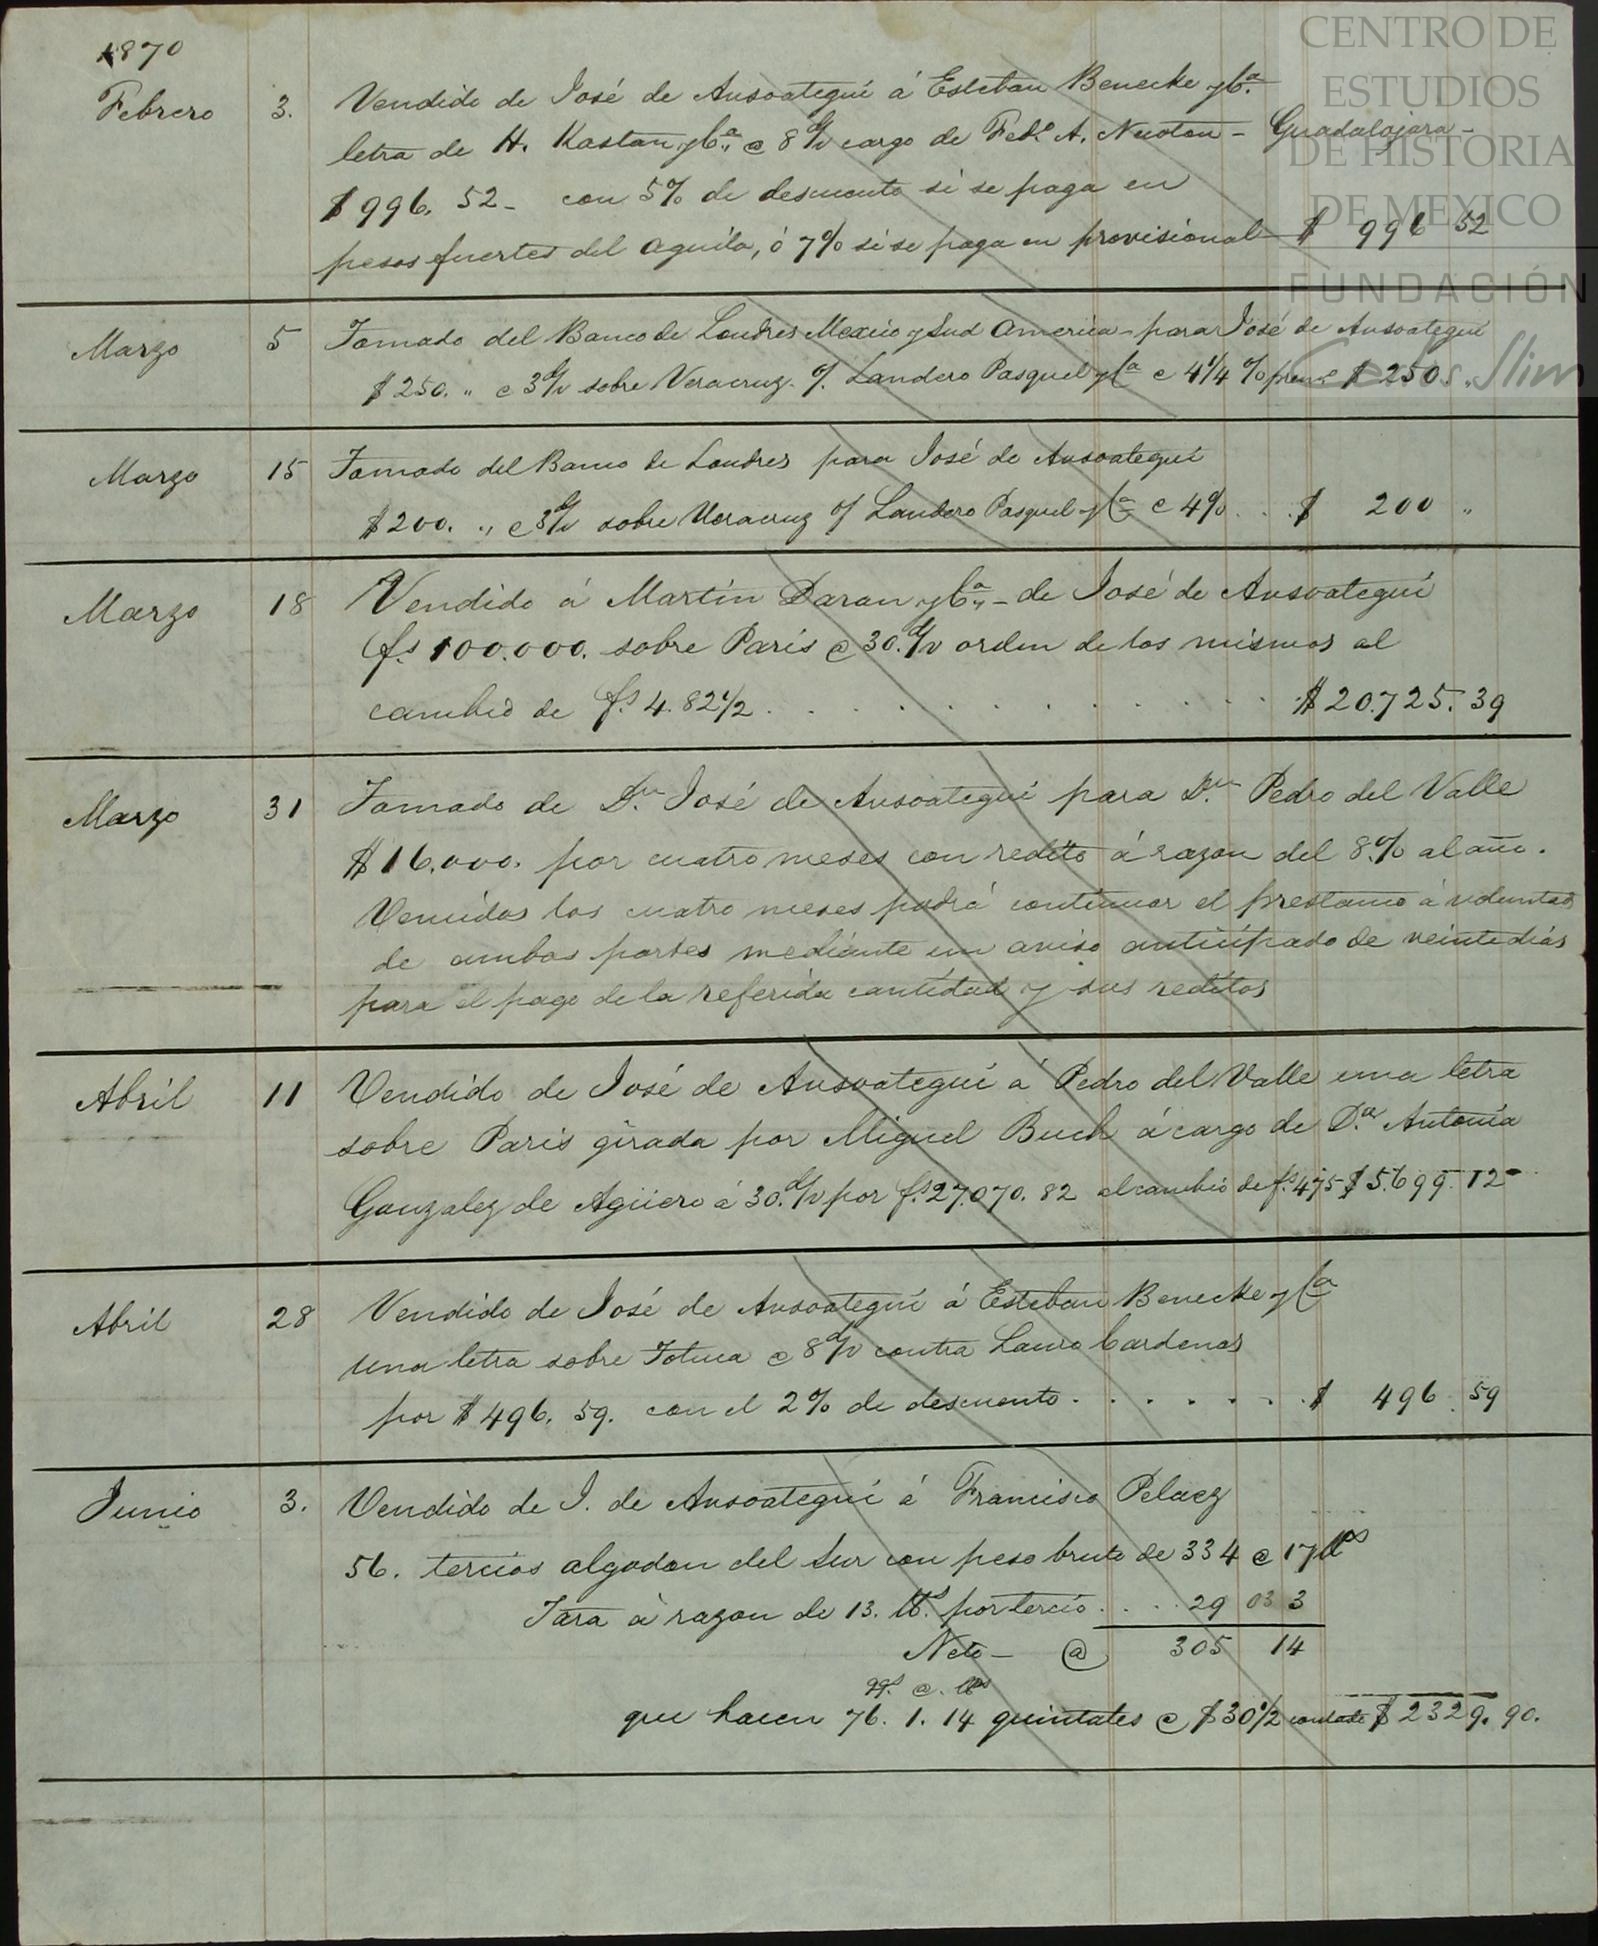 1870
Febrero 3. Vendido de José de Ansoategui á Esteban Benecke y Cª
letra de H. Kastan y Cª @ 8 d/v cargo de Fedº A. Newton - Guadalajara -
$996. 52 - con 5% de descuento si se paga en
pesos fuertes del aguila, ó 7% si se paga en provisional $ 996 52
Marzo 5 Tomado del Banco de Londres Mexico y Sud America - para José de Ansoategui
$250. " @ 3 d/v sobre Veracruz o/. Landero Pasquel y Cª @ 4 1/4 % premº $ 250. "
Marzo 15 Tomado del Banco de Londres para José de Ansoategui
$200. " @ 3 d/v sobre Veracruz o/ Landero Pasquel y Cª @ 4% . . . $ 200 "
Marzo 18 Vendido á Martin Daran y Cª - de José de Ansoategui
fs 100.000. sobre Paris @ 30. d/v orden de los mismos al
cambio de fs. 4.82 1/2 . . . . . . . . . . . $ 20.725. 39
Marzo 31 Tomado de Dn José de Ansoategui para Dn Pedro del Valle
$16.000. por cuatro meses con redito á razon del 8.% al año.
Vencidos los cuatro meses podrá continuar el prestamo á voluntad
de ambas partes mediante un aviso anticipado de veinte dias
para el pago de la referida cantidad y sus reditos
Abril 11 Vendido de José de Ansoategui á Pedro del Valle una letra
sobre Paris girada por Miguel Buch á cargo de Dª Antonia
Gonzalez de Agüero á 30. d/v por fs. 27.070. 82 al cambio de fs. 475 $ 5.699. 12 -
Abril 28 Vendido de José de Ansoategui á Esteban Benecke y Cª
una letra sobre Toluca @ 8 d/v contra Lauro Cardenas
por $496. 59. con el 2% de descuento . . . . . . $ 496. 59
Junio 3. Vendido de J. de Ansoategui á Francisco Pelaez
56. tercios algodon del Sur con peso bruto de 334 @ 17 lbs
Tara á razon de 13. lbs. por tercio . . . . 29 03 3
Neto - @ 305 14
qqs. @. lbs
que hacen 76. 1. 14 quintales @ $30 1/2 contado $ 2329. 90.
CENTRO DE
ESTUDIOS
DE HISTORIA
DE MEXICO
FUNDACIÓN
Carlos Slim